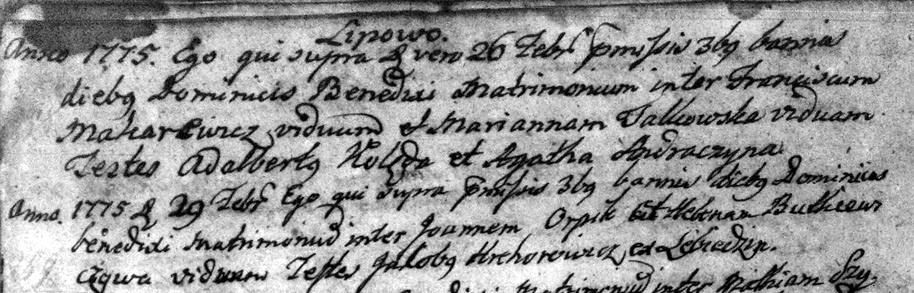 Lipowo.
Anno 1775. Ego qui supra d vero 26 Febr pmissis 3bg bannis
diebg Dominicis Benedixi Matrimonium inter Franciscum
Makarewicz viduum et Mariannam Falkowska viduam
Testes Adalbertg et Agatha Andraczyna
Anno 1775 d 29 Febr Ego qui supra pmissis 3bg bannis diebg Dominicis
benedixi Matrimoniu inter Joannem Orpik et Helenam
viduam Testes Jakobg Hrehorowicz ex
Matrimoniu inter Mathiam